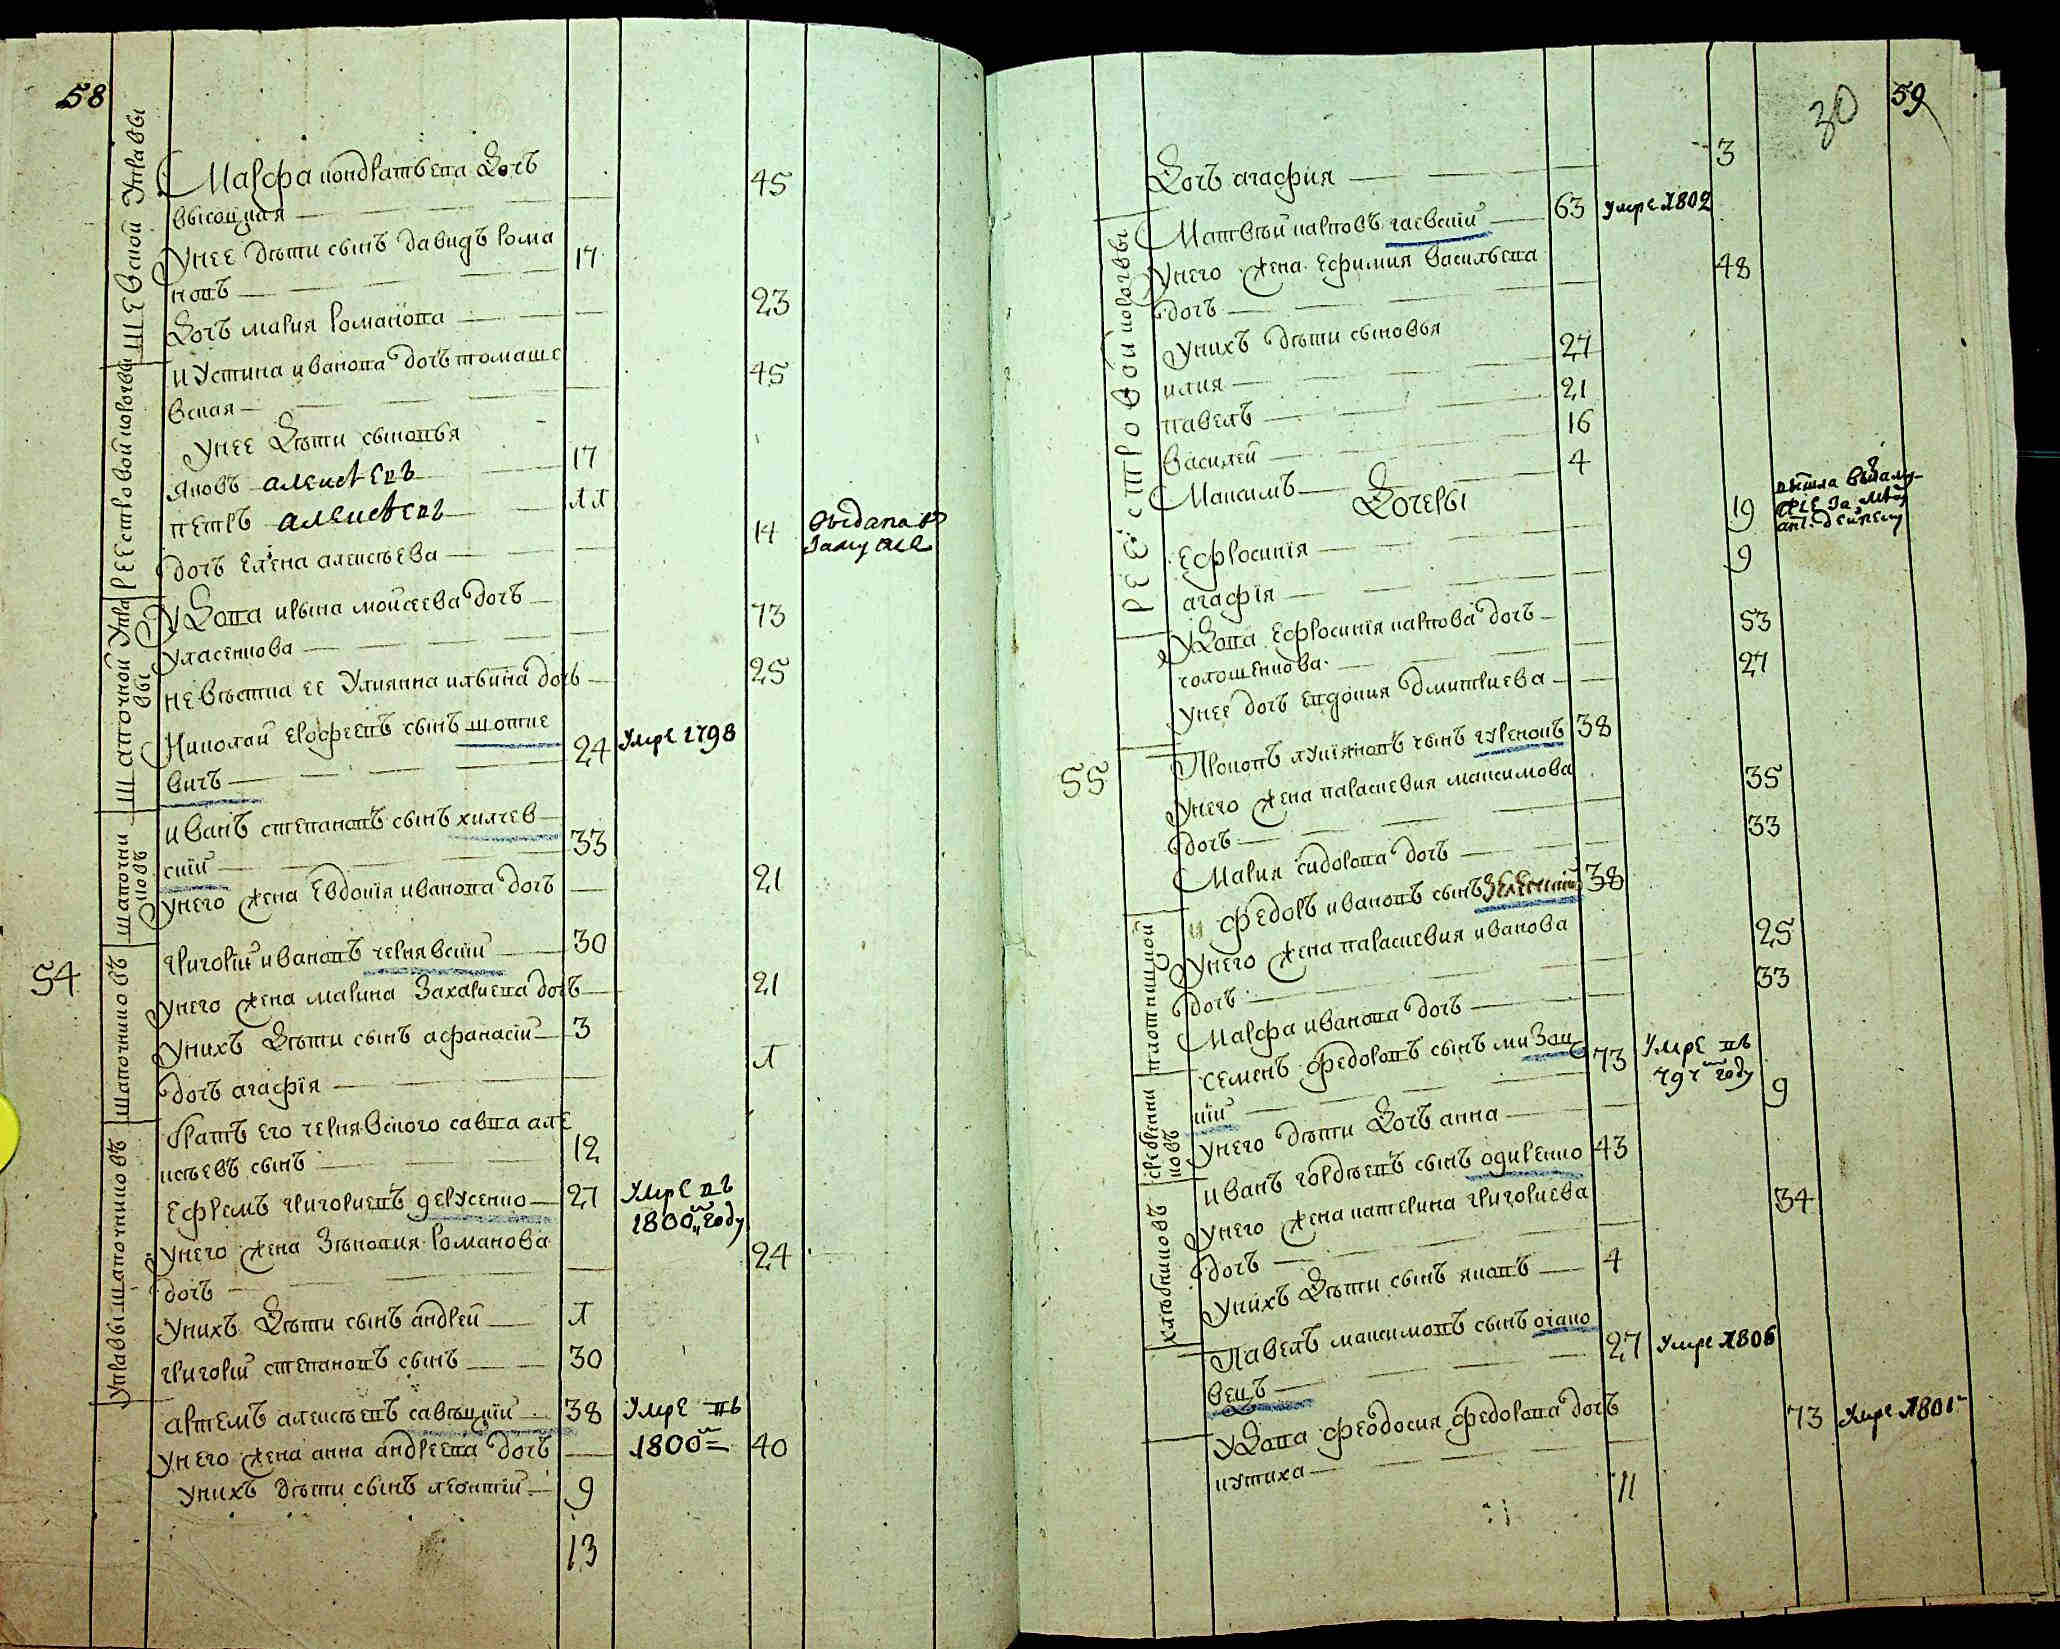 58
Шевской Управы
Марфа кондратьева Дочь
45
высоцкая
Унее дѣти сынъ давидъ рома
новъ
17
Дочь мария романова
23
Реестровой половы
и Устина иванова дочь томаше
вская
45
Унее Дѣти сыновья
Яковъ алексѣевъ
17
петръ алексѣевъ
11
дочь Елена алексѣева
14
выдана в
замуже
Шапочной Упра
вы
УДова ирына моисеева дочь
73
Уласенкова
невѣстка ее Улиянна ильина дочь
25
Николай ерофеевъ сынъ шопке
вичъ
24
Умре 1798
шапочни
ковъ
иванъ степановъ сынъ хилчев
ский
33
Унего жена Евдокія иванова дочь
21
54
шапочниковъ
григорий ивановъ чернявский
30
Унего жена марина Захариева дочь
21
Унихъ Дѣти сынъ афанасий
3
дочь агафія
1
Управы шапочниковъ
братъ его чернявского савва але
ксѣевъ сынъ
12
Ефремъ григориевъ дерусенко
27
Умре въ
1800м году
Унего жена Зѣновия романова
дочь
24
Унихъ Дѣти сынъ андрей
1
григорий степановъ сынъ
30
артемъ алексѣевъ савѣцкий
38
Умре въ
1800м
Унего жена анна андреева дочь
40
Унихъ дѣти сынъ леонтий
9
13
59
30
Дочь агафия
3
Реестровой половы
Матвѣй карповъ гаевский
63
умре 1802
Унего жена Ефимия васильева
дочь
48
Унихъ дѣти сыновья
илия
27
павелъ
21
василей
16
Максимъ
4
Дочеры
Ефросинія
19
агафія
9
УДова Ефросинія карпова дочь
53
голошенкова
Унее дочь евдокия дмитриева
27
55
Прокопъ лукіяновъ сынъ гуренокъ
38
Унего жена параскевия максимова
дочь
35
Мария сидорова дочь
33
плотницкой
федоръ ивановъ сынъ
38
Унего жена параскевия иванова
дочь
25
Марфа иванова дочь
33
сребренни
ковъ
семенъ федоровъ сынъ мизоц
кий
73
Умре въ
797м году
Унего дѣти Дочь анна
9
хлѣбниковъ
иванъ гордѣевъ сынъ одиренко
43
Унего жена катерина григориева
дочь
34
Унихъ Дѣти сынъ яковъ
4
Павелъ максимовъ сынъ огіано
вецъ
27
Умре 1806
УДова феодосия федорова дочь
73
Умре 1801
кутиха
11